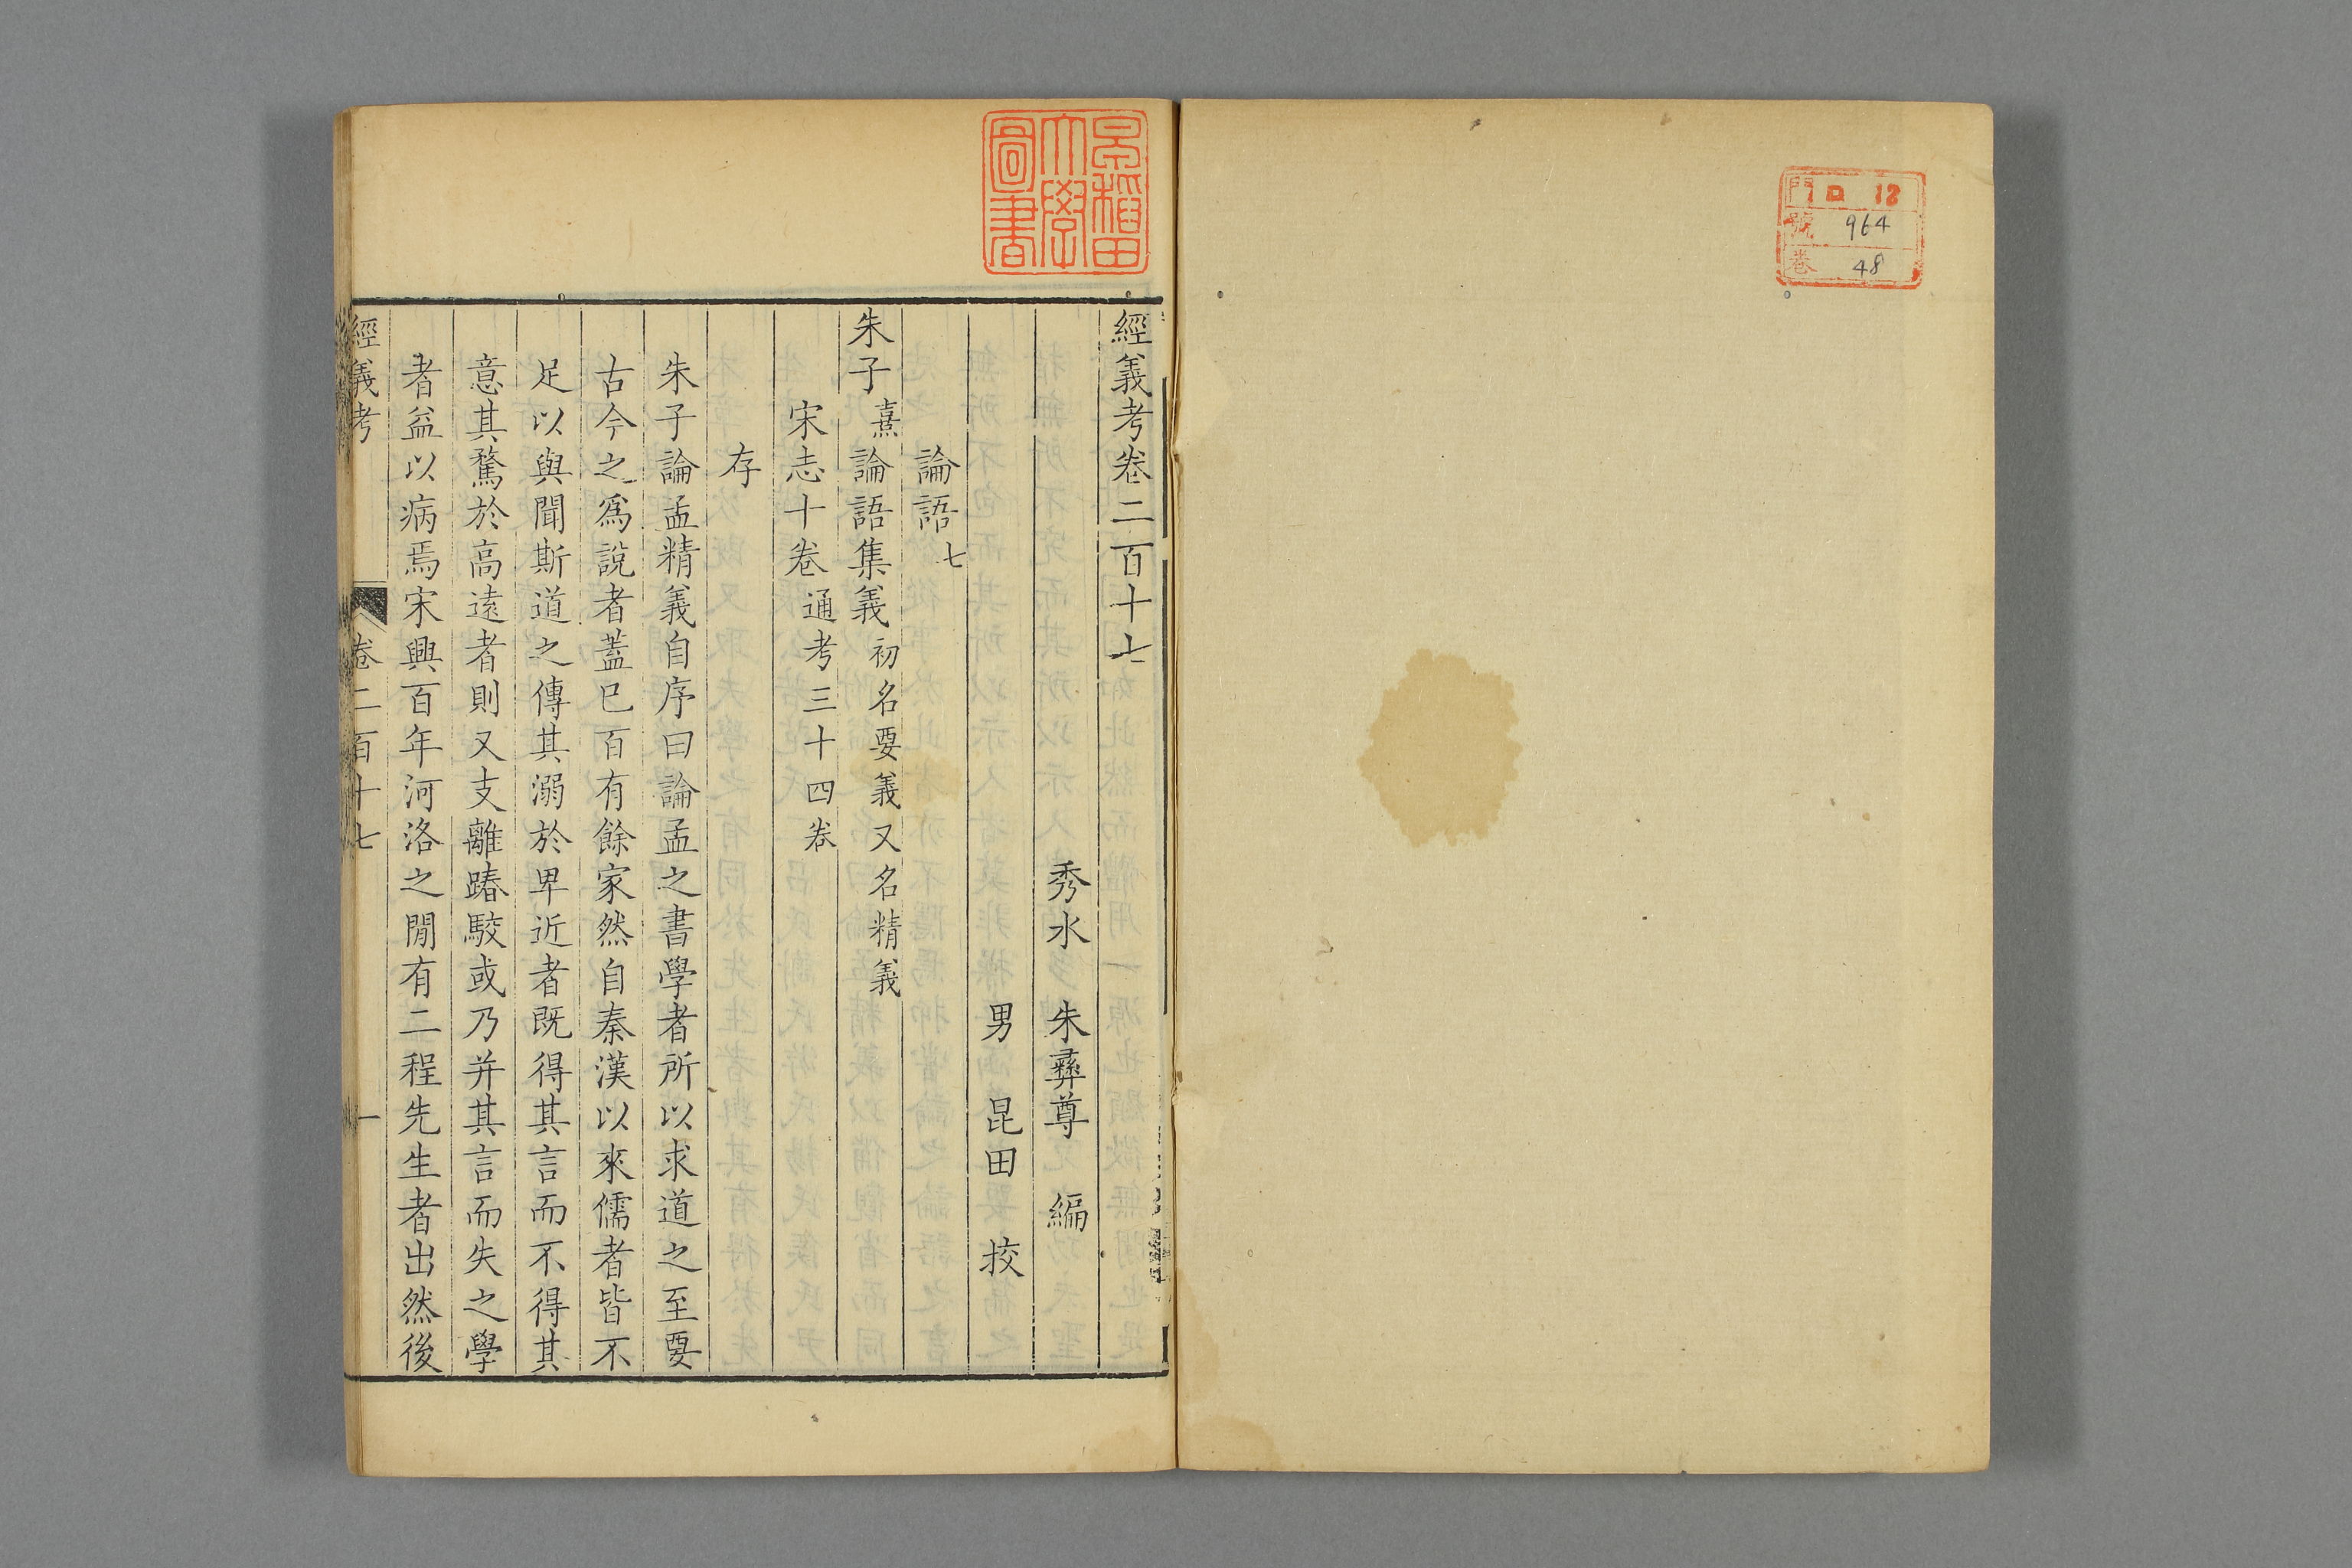 門 ロ 12
號 964
卷 48
早稻田
大學
圖書
經義考卷二百十七
秀水 朱彝尊 編
男 昆田 挍
論語七
朱子熹論語集義初名要義又名精義
宋志十卷通考三十四卷
存
朱子論孟精義自序曰論孟之書學者所以求道之至要
古今之爲說者蓋已百有餘家然自秦漢以來儒者皆不
足以與聞斯道之傳其溺於卑近者既得其言而不得其
意其騖於高遠者則又支離踳駮或乃并其言而失之學
者益以病焉宋興百年河洛之閒有二程先生者出然後
經義考 卷二百十七 一